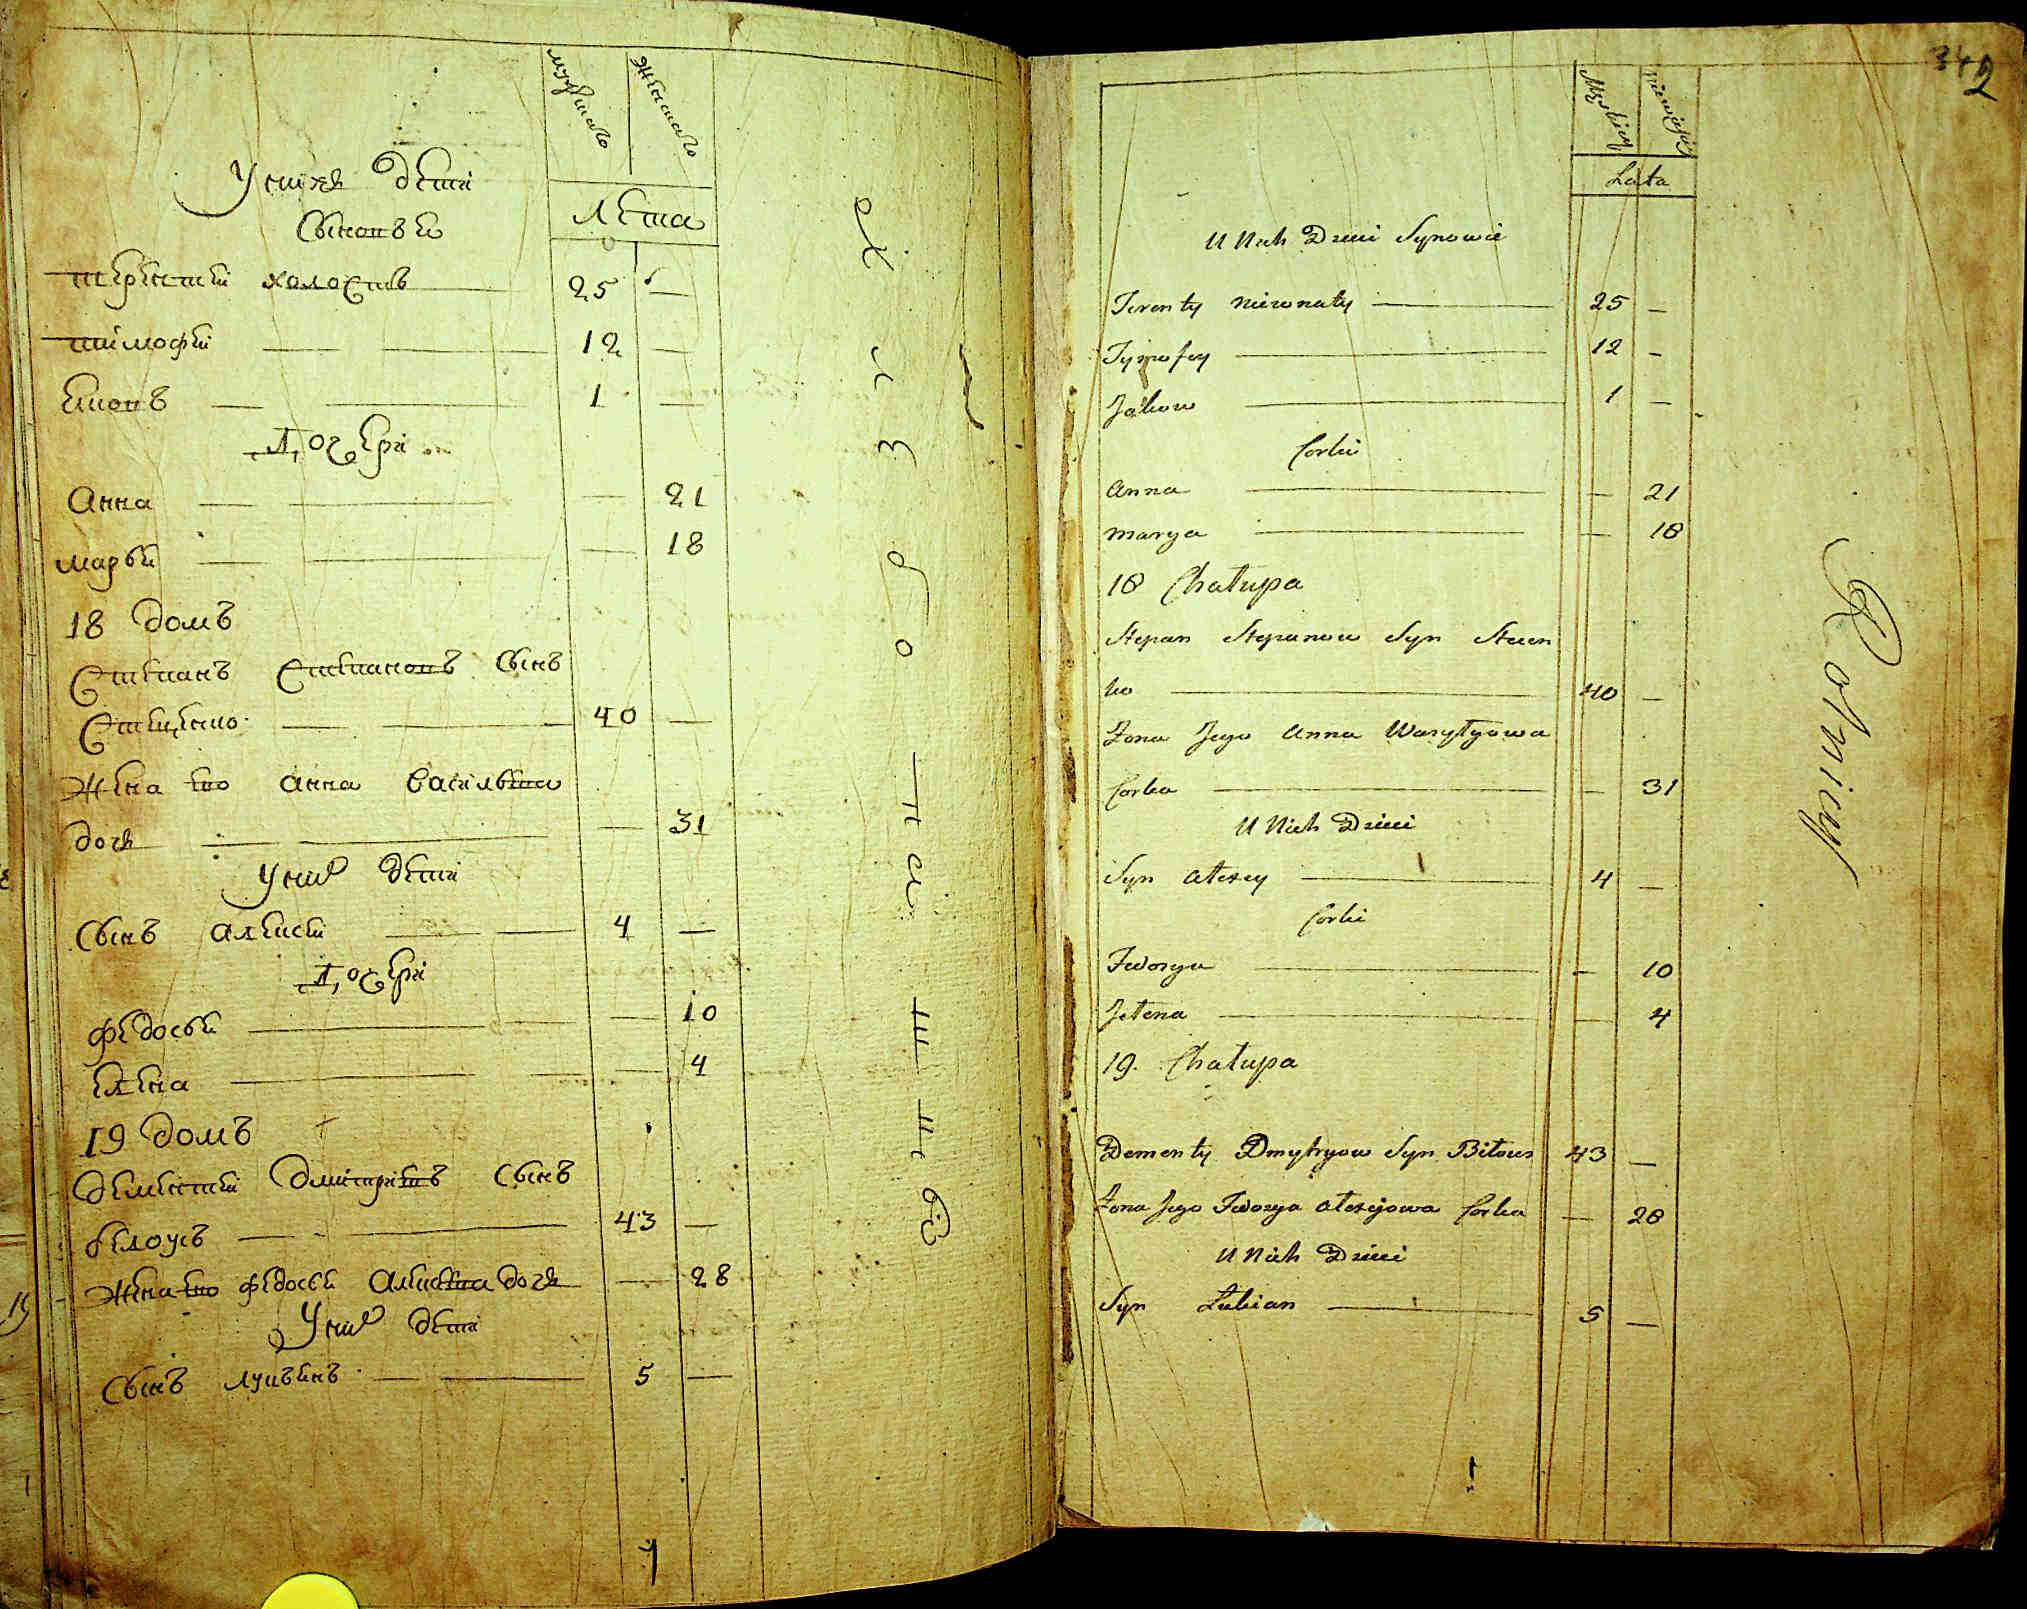 мужеска
женска
Лета
У нихъ дети
Сыновеи
терентеи холостъ 25 —
тимофеи — 12 —
Дочери
Анна — — 21
Марья — — 18
18 домъ
Степанъ Степановъ сынъ
Стеценко — 40 —
Жена ево Анна Васильева
дочь — — 31
У них дети
Сынъ алексеи — 4 —
Дочери
федосья — — 10
елена — — 4
19 домъ
дементеи дмитриевъ сынъ
белоусъ — 43 —
жена ево федосья алексеева дочь — 28
У них дети
Сынъ лукъянъ — 5 —
342
Męskiey
niewieskiey
Lata
U Nich Dzieci Synowie
Terenty nieżonaty — 25 —
Tymofey — 12 —
Jakow — 1 —
Corki
Anna — — 21
Marya — — 18
18 Chałupa
Stepan Stepanow Syn Stecen
ko — 40 —
Żona Jego Anna Wasylyowa
Corka — — 31
U Nich Dzieci
Syn Alexey — 4 —
Corki
Fedosya — — 10
Jelena — — 4
19. Chałupa
Dementy Dmytryow Syn Biłous 43 —
Żona Jego Fedosya Alexejowa Corka — 28
U Nich Dzieci
Syn Łukian — 5 —
Rolnicy